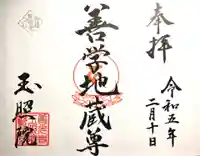 奉拝
令和五年
二月十日
善学地蔵尊
玉照院